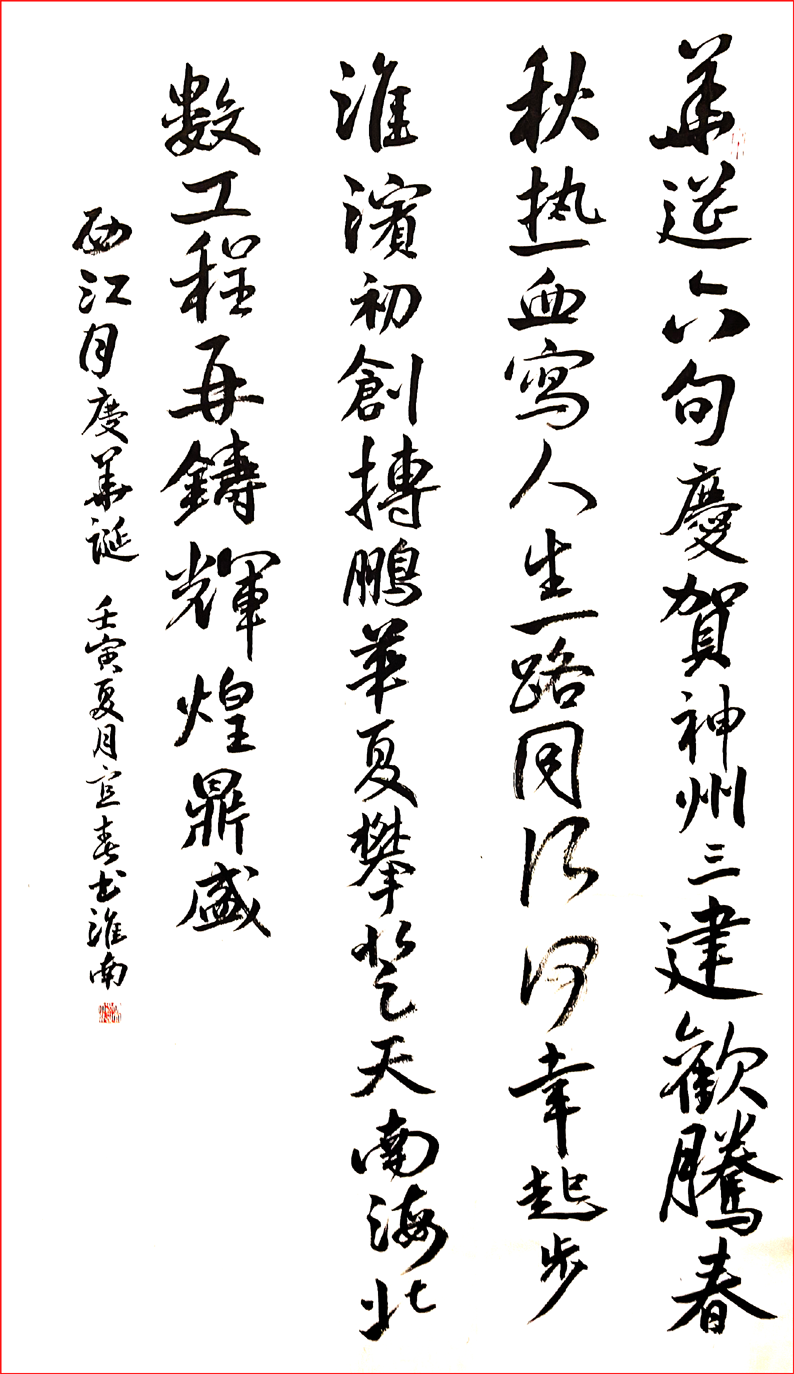 華筵六旬慶賀神州三建歡騰春
秋热血寫人生一路同行何幸起步
淮濱初創摶鵬華夏攀登天南海北
数工程再鑄輝煌鼎盛
西江月慶華誕 壬寅夏月宜春书淮南